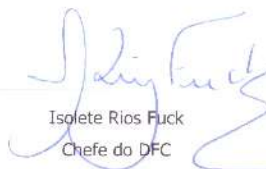 Isolete Rios Fuck
Chefe do DFC